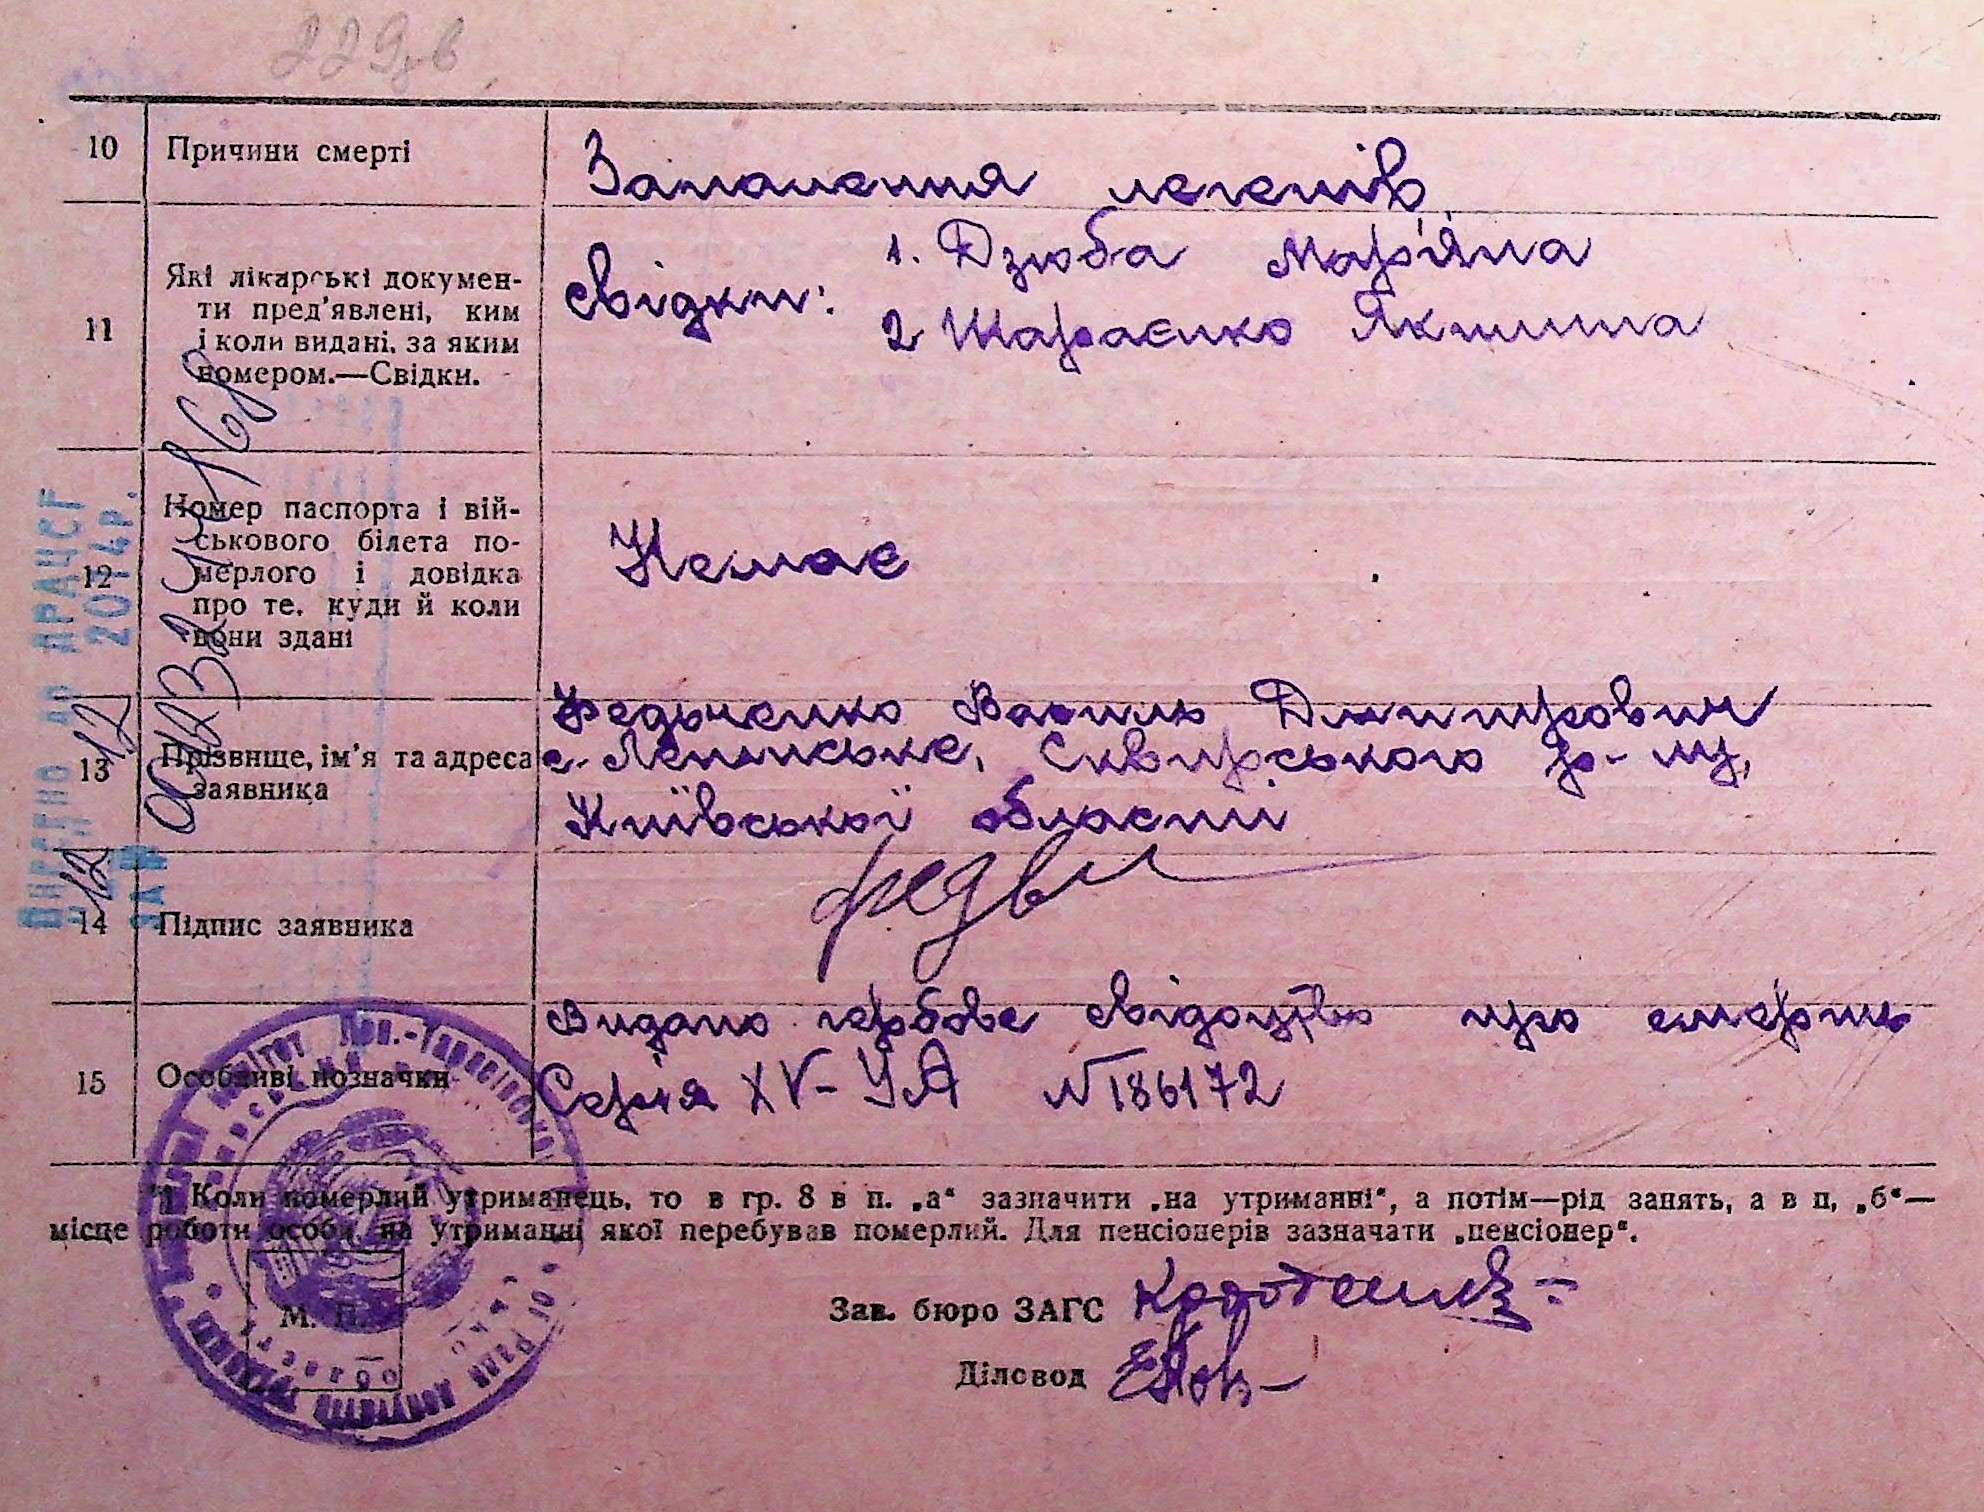 229зв
10 Причини смерті Запалення легенів
11 Які лікарські докумен-
ти пред'явлені, ким
і коли видані, за яким
номером.—Свідки.
свідки: 1. Дзюба Мар'яна
2 Шараєнко Якилина
12 Номер паспорта і вій-
ськового білета по-
мерлого і довідка
про те, куди й коли
вони здані
Немає
13 Прізвище, ім'я та адреса
заявника
Федьченко Василь Дмитрович
с. Ленінське, Сквирського р-ну,
Київської області
14 Підпис заявника
15 Особливі позначки
Видано гербове свідоцтво про смерть
Серія XV-УА №186172
*) Коли померлий утриманець, то в гр. 8 в п. „а“ зазначити „на утриманні“, а потім—рід занять, а в п, „б“—
місце роботи особи, на утриманні якої перебував померлий. Для пенсіонерів зазначати „пенсіонер“.
М. П.
Зав. бюро ЗАГС
Діловод
ДРАЦСГ
2014р.